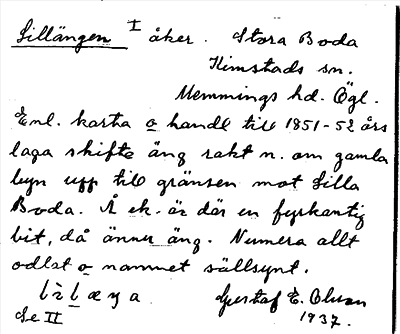 Lillängen I åker. Stora Boda
Kimstads sn.
Memmings hd. Ögl.
Enl. karta o handl till 1851-52 års
laga skifte äng rakt n. om gamla
byn upp till gränsen mot Lilla
Boda. Å ek. är där en fyrkantig
bit, då ännu äng. Numera allt
odlat o namnet sällsynt.
Gustaf E. Olson
Se II 1937.